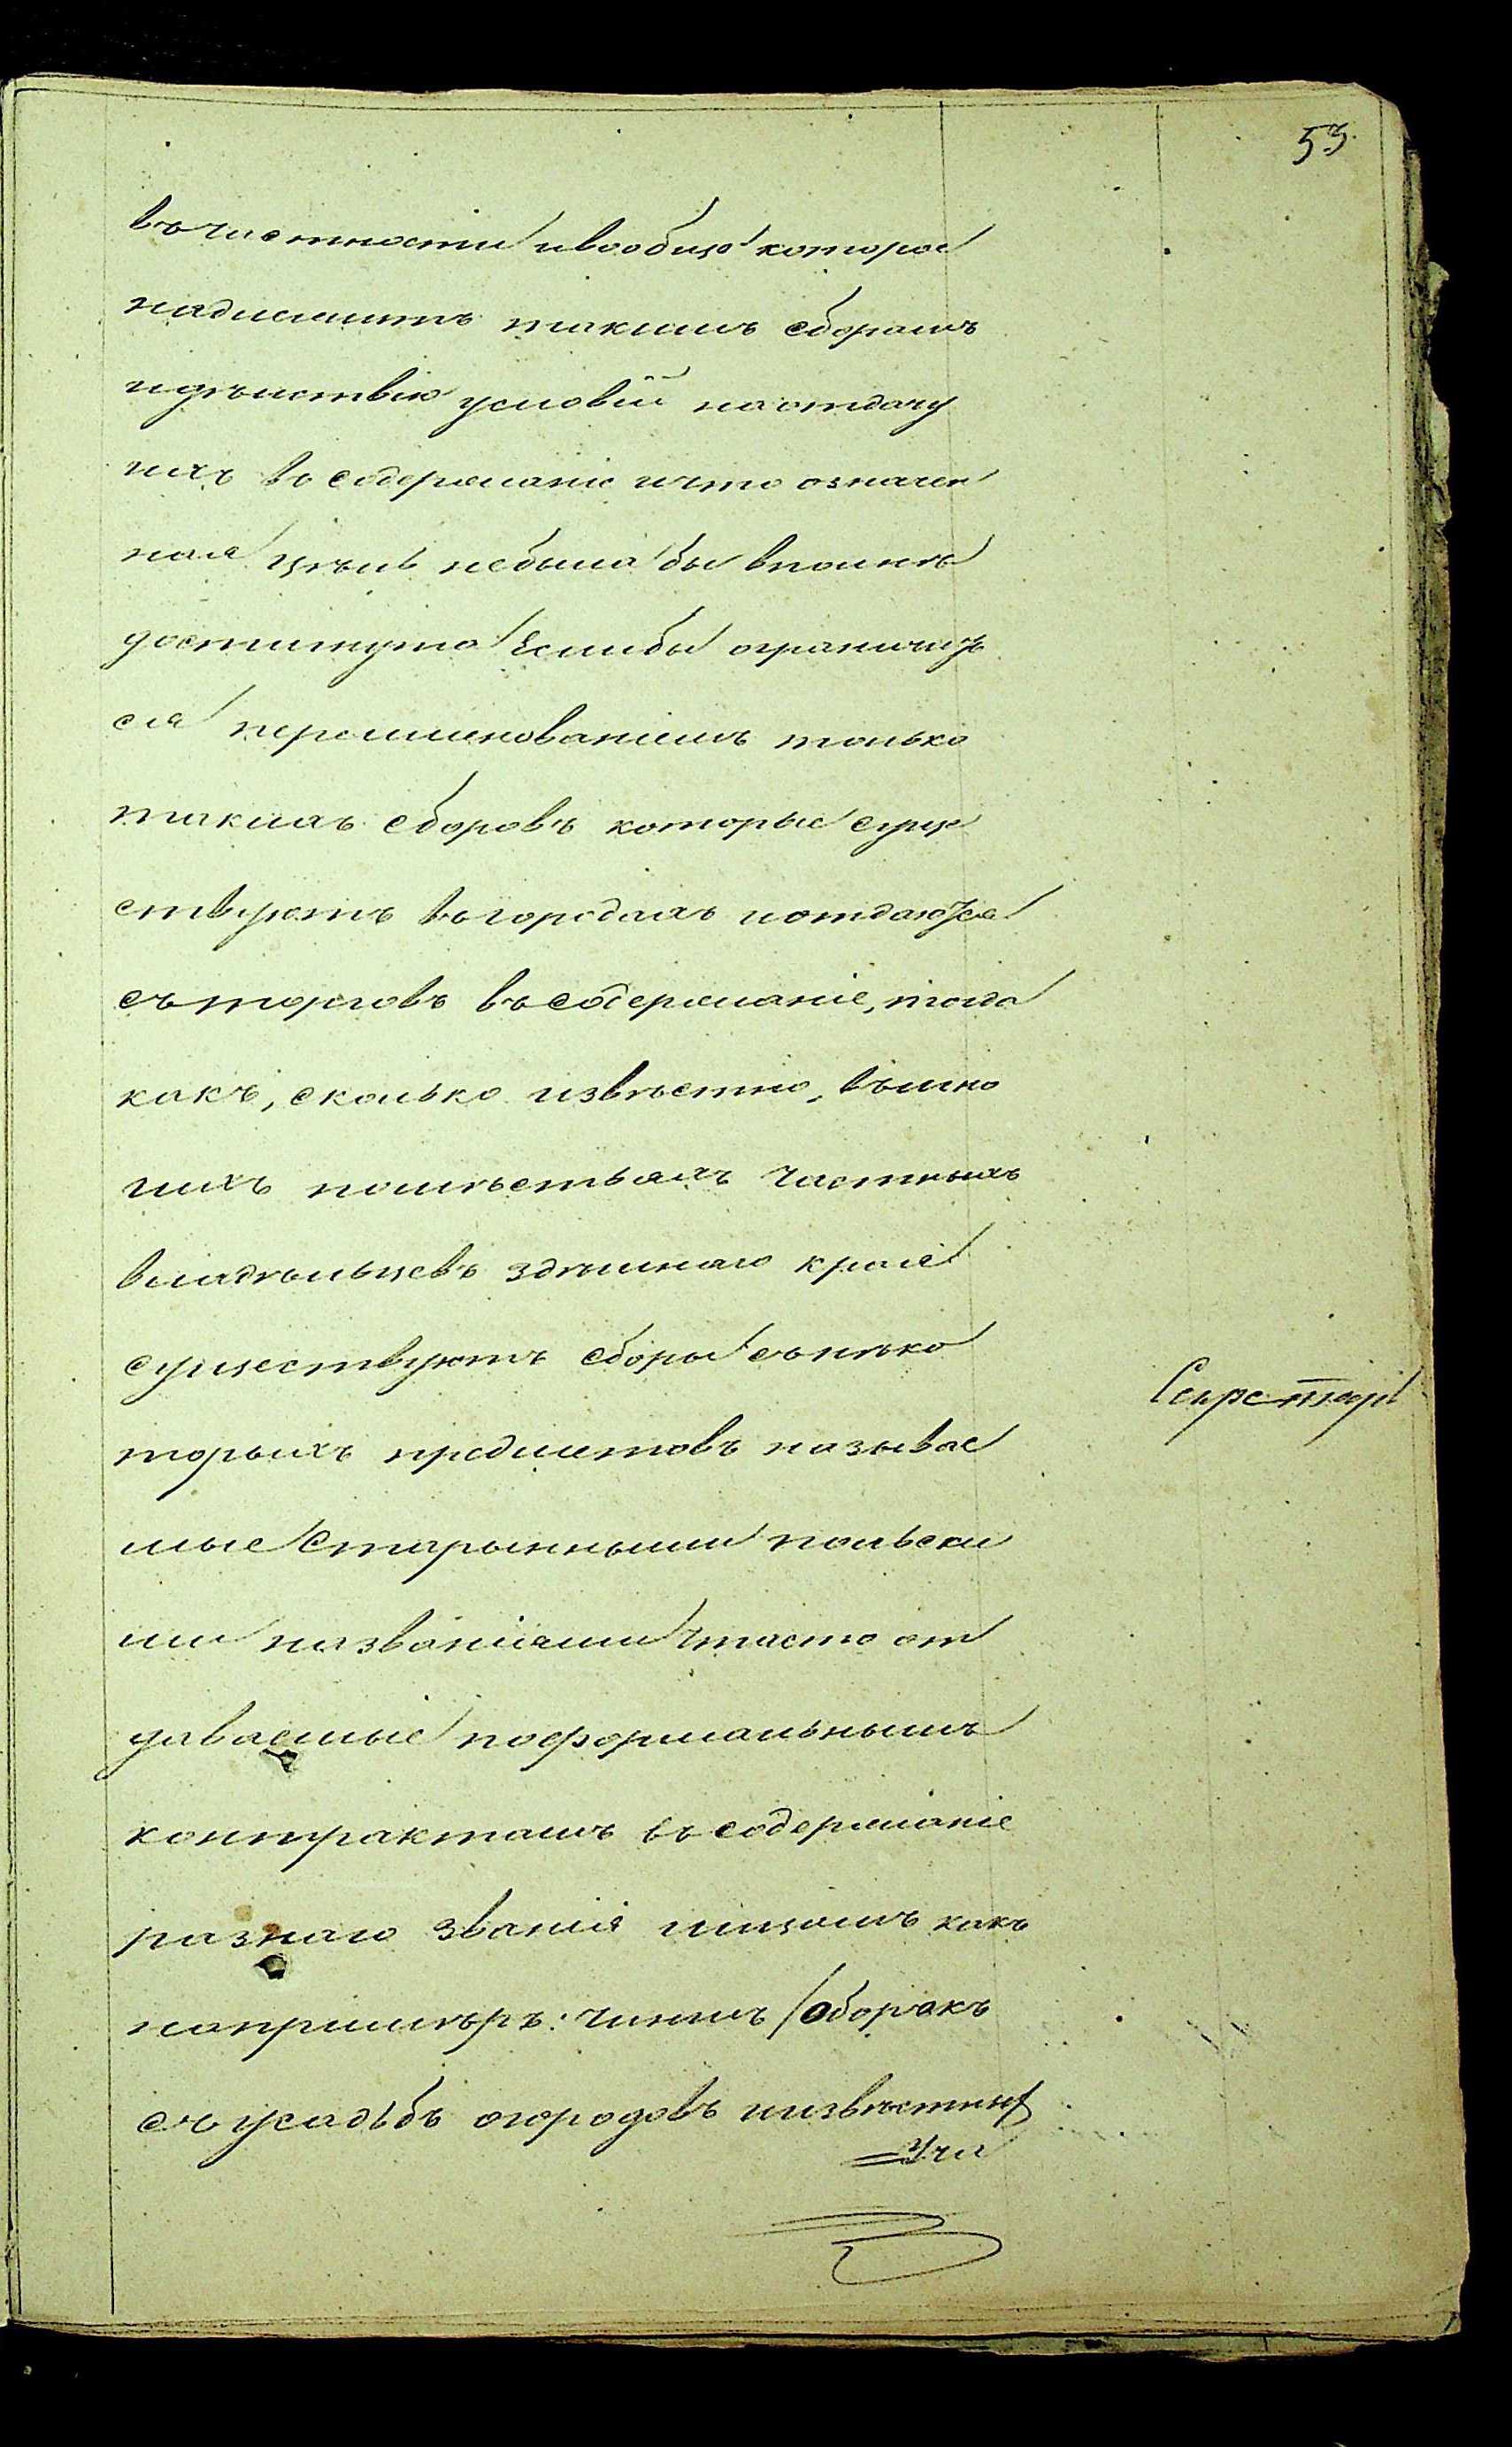 53.
въ частности и вообще которое
надлежитъ такимъ сборамъ
и дѣйствію условій на отдачу
ихъ въ содержаніе и что означен
ная цѣль небыла бы вполнѣ
достигнута Еслибы ограничить
ся переименованіемъ только
такихъ сборовъ которые суще
ствуютъ въ городахъ и отдаются
съ торговъ въ содержаніе, тогда
какъ, сколько извѣстно, въ мно
гихъ помѣстьяхъ частныхъ
владѣльцевъ здѣшняго края
существуютъ сборы съ нѣко
торыхъ предметовъ называе
мые Старинными польски
ми названіями и часто от
даваемые по формальнымъ
контрактамъ въ содержаніе
разнаго званія лицамъ какъ
напримѣръ: чиншъ /оброкъ
съ усадьбъ огородовъ и извѣстныхъ
Секретарь